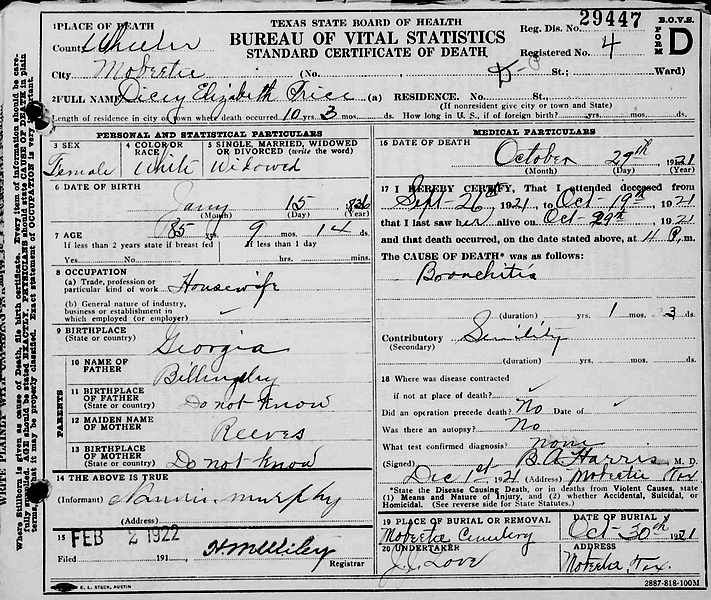 TEXAS STATE BOARD OF HEALTH
BUREAU OF VITAL STATISTICS
STANDARD CERTIFICATE OF DEATH
Reg. Dis. No. 29447
Registered No. 4
B.O.V.S.
FORM D
1 PLACE OF DEATH
County Wheeler
City Mobeetie (No. St.; Ward)
2 FULL NAME Dicey Elizabeth Trice (a) RESIDENCE. No. St.:
(If nonresident give city or town and State)
Length of residence in city or town where death occurred 10 yrs. 3 mos. ds. How long in U. S., if of foreign birth? yrs. mos. ds.
PERSONAL AND STATISTICAL PARTICULARS
3 SEX Female
4 COLOR OR RACE White
5 SINGLE, MARRIED, WIDOWED OR DIVORCED (write the word) Widowed
6 DATE OF BIRTH
Jany 15 1836
(Month) (Day) (Year)
7 AGE 85 yrs. 9 mos. 14 ds.
If less than 2 years state if breast fed If less than 1 day
Yes No hrs. mins.
8 OCCUPATION
(a) Trade, profession or particular kind of work Housewife
(b) General nature of industry, business or establishment in which employed (or employer) ✓
9 BIRTHPLACE
(State or country) Georgia
PARENTS
10 NAME OF FATHER Billingsley
11 BIRTHPLACE OF FATHER
(State or country) Do not know
12 MAIDEN NAME OF MOTHER Reeves
13 BIRTHPLACE OF MOTHER
(State or country) Do not know
14 THE ABOVE IS TRUE
(Informant) Murphy
(Address)
15 FEB 2 1922
Filed 191 , H M Wiley
Registrar
MEDICAL PARTICULARS
16 DATE OF DEATH
October 29th 1921
(Month) (Day) (Year)
17 I HEREBY CERTIFY, That I attended deceased from
Sept-26th, 1921, to Oct-19th, 1921
that I last saw her alive on Oct-29th, 1921
and that death occurred, on the date stated above, at 11 P. m.
The CAUSE OF DEATH* was as follows:
Bronchitis
(duration) yrs. 1 mos. 3 ds.
Contributory Senility
(Secondary)
(duration) yrs. mos. ds.
18 Where was disease contracted ✓
if not at place of death?
Did an operation precede death? No Date of ✓
Was there an autopsy? No
What test confirmed diagnosis? none
(Signed) B.A. Harris, M. D.
Dec 1st 1921 (Address) Mobeetie Tex
*State the Disease Causing Death, or in deaths from Violent Causes, state
(1) Means and Nature of Injury, and (2) whether Accidental, Suicidal, or
Homicidal. (See reverse side for State Statutes.)
19 PLACE OF BURIAL OR REMOVAL
Mobeetie Cemetery
DATE OF BURIAL
Oct-30th 1921
20 UNDERTAKER
J. J. Love
ADDRESS
Mobeetie, Tex.
E. L. STECK, AUSTIN
2887-818-100M